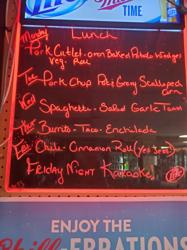 TIME
Lunch
Monday
Pork Cutlet - corn Baked Potato Wedges
Veg. Roll
Tue Pork Chop Pot & Gravy Scalloped
corn
Wed Spaghetti - Salad Garlic Toast
Burrito - Taco - Enchilada
Chili - Cinnamon Roll (Yes Sir!)
Friday Night Karaoke!
ENJOY THE